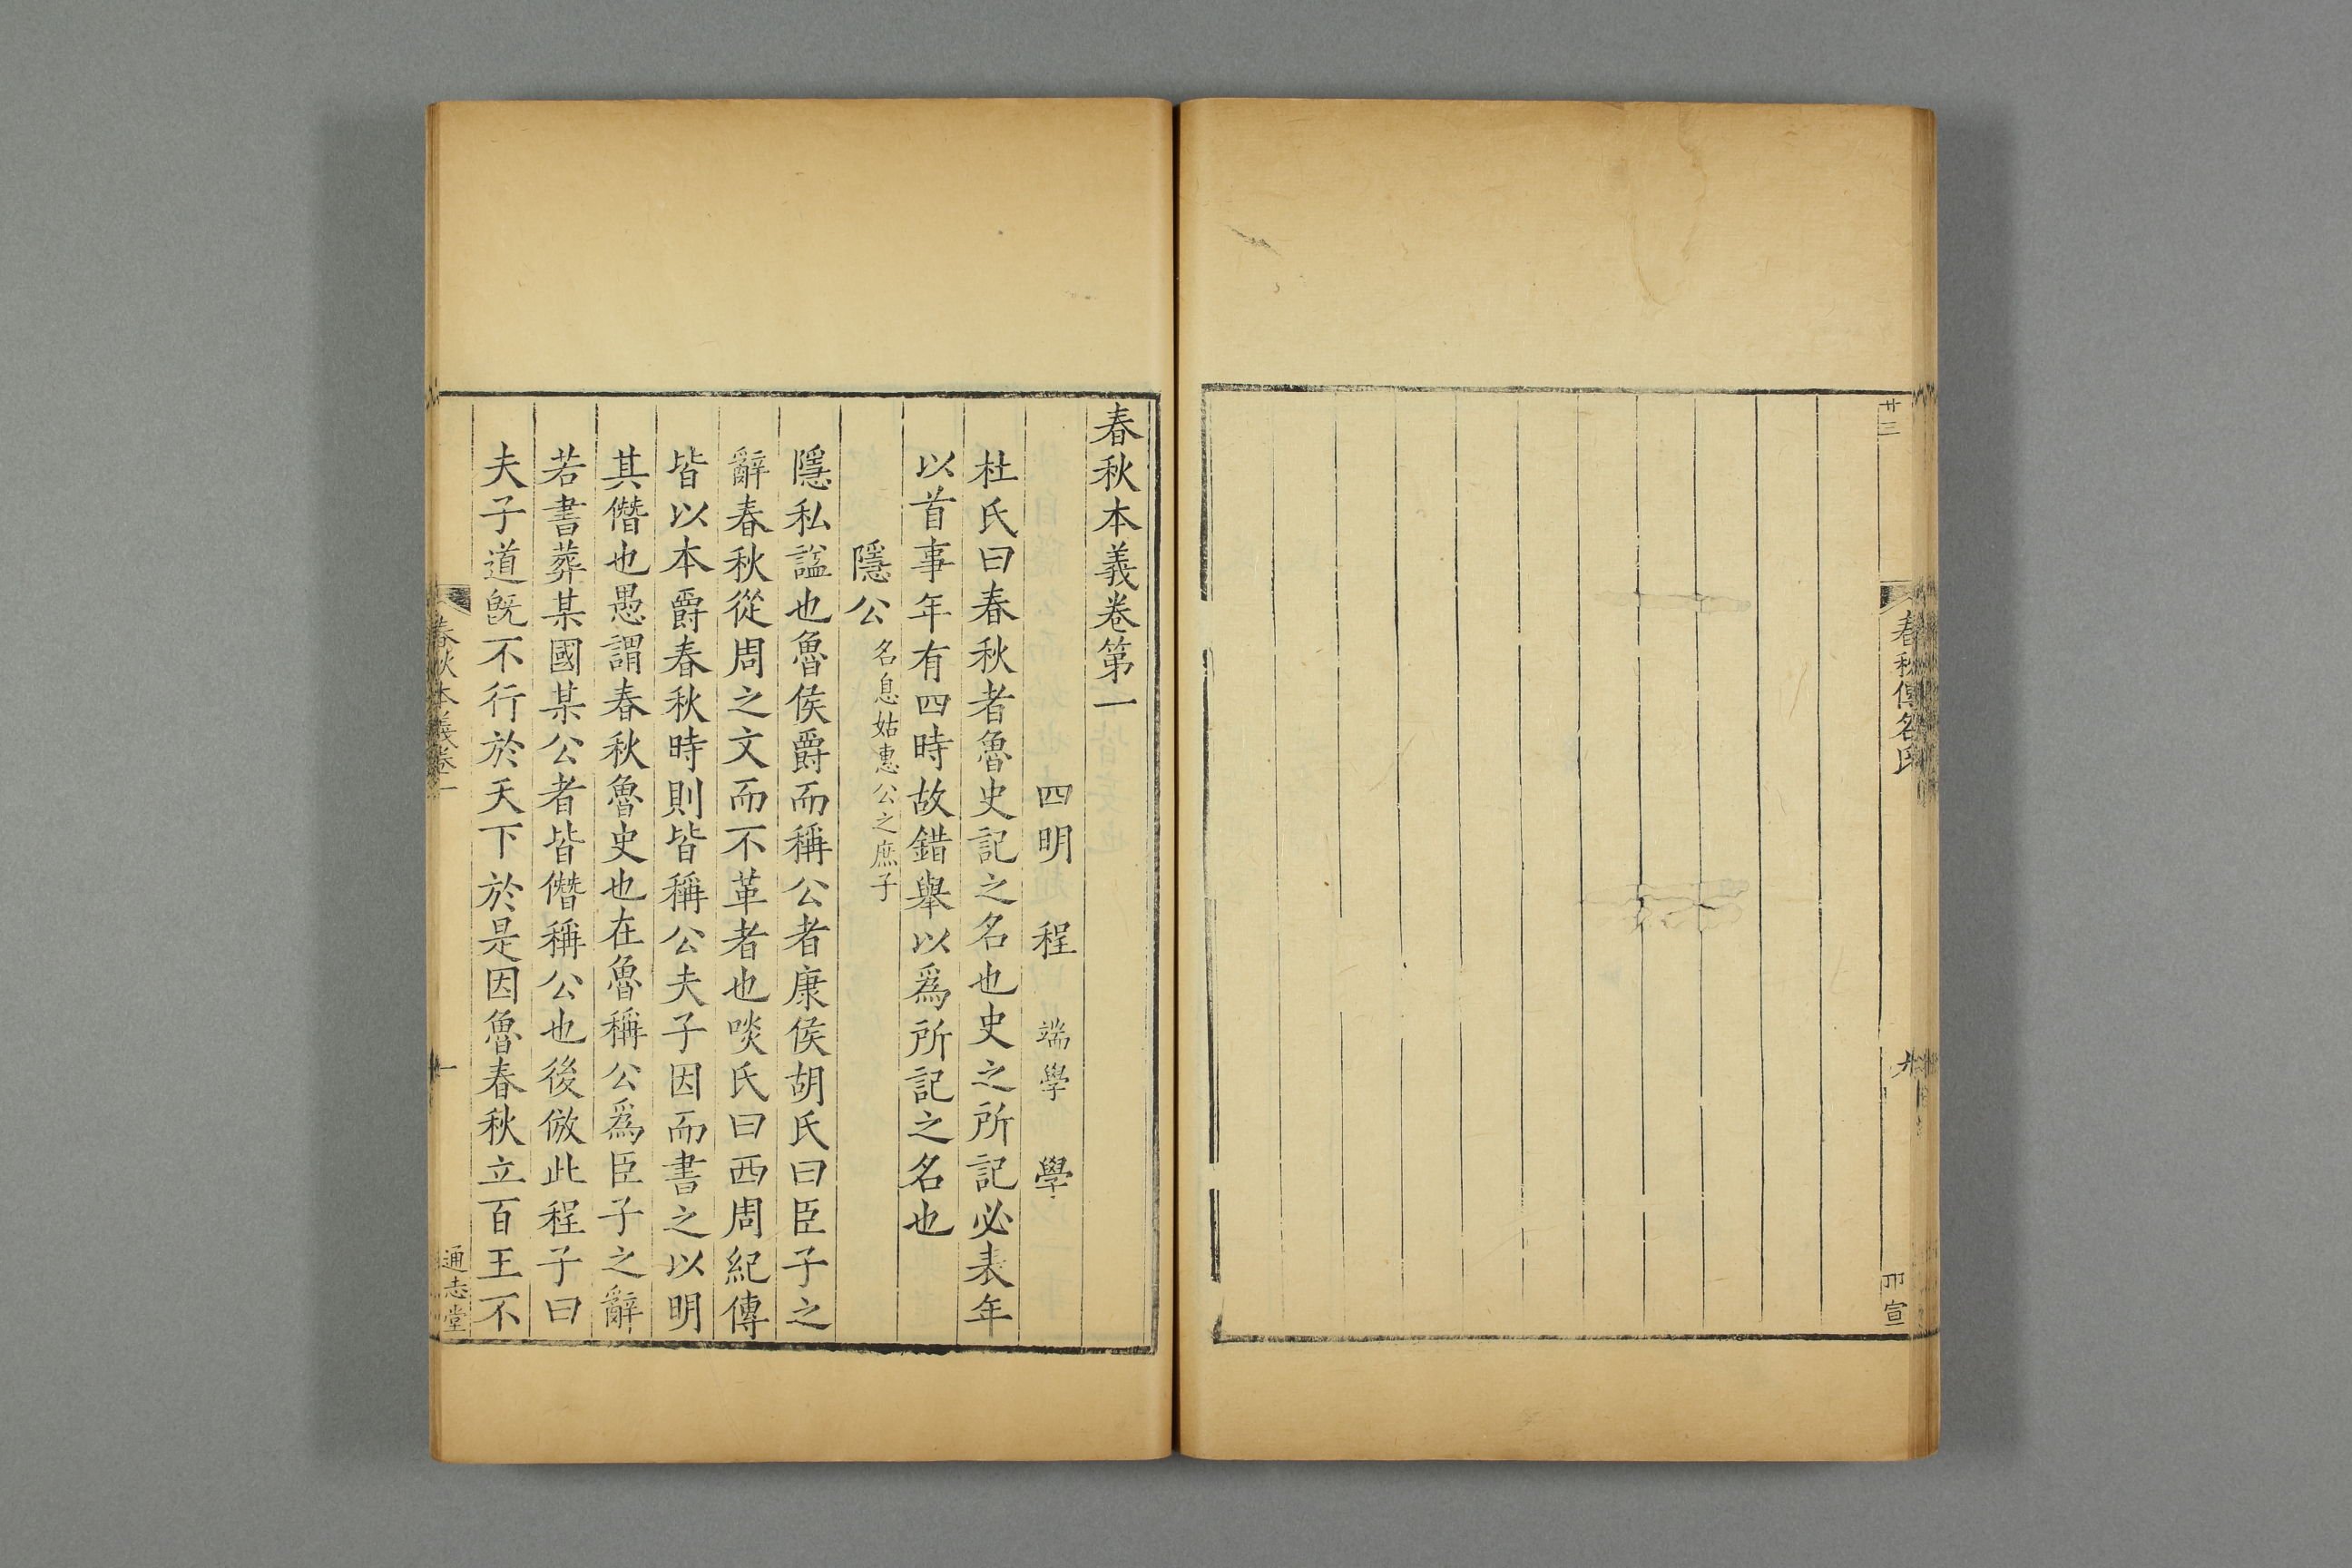 廿三
春秋傳名氏
宣
春秋本義卷第一
四明　程　端學　學
杜氏曰春秋者魯史記之名也史之所記必表年
以首事年有四時故錯舉以爲所記之名也
隱公名息姑惠公之庶子
隱私諡也魯侯爵而稱公者康侯胡氏曰臣子之
辭春秋從周之文而不革者也啖氏曰西周紀傳
皆以本爵春秋時則皆稱公夫子因而書之以明
其僭也愚謂春秋魯史也在魯稱公爲臣子之辭
若書葬某國某公者皆僭稱公也後倣此程子曰
夫子道旣不行於天下於是因魯春秋立百王不
春秋本義卷一
一
通志堂